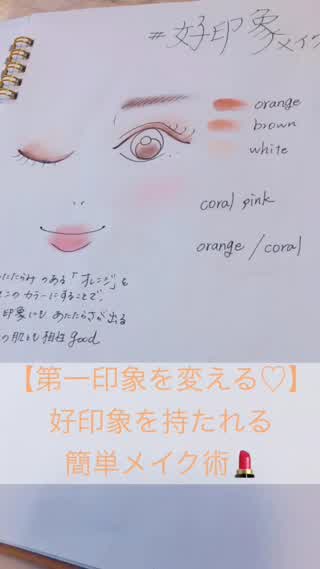 #好印象メイク
orange
brown
white
coral pink
orange/coral
あたたかみのある「オレンジ」を
このカラーにすることで、
印象にもあたたかさが出る
の肌とも相性good
【第一印象を変える♡】
好印象を持たれる
簡単メイク術💄